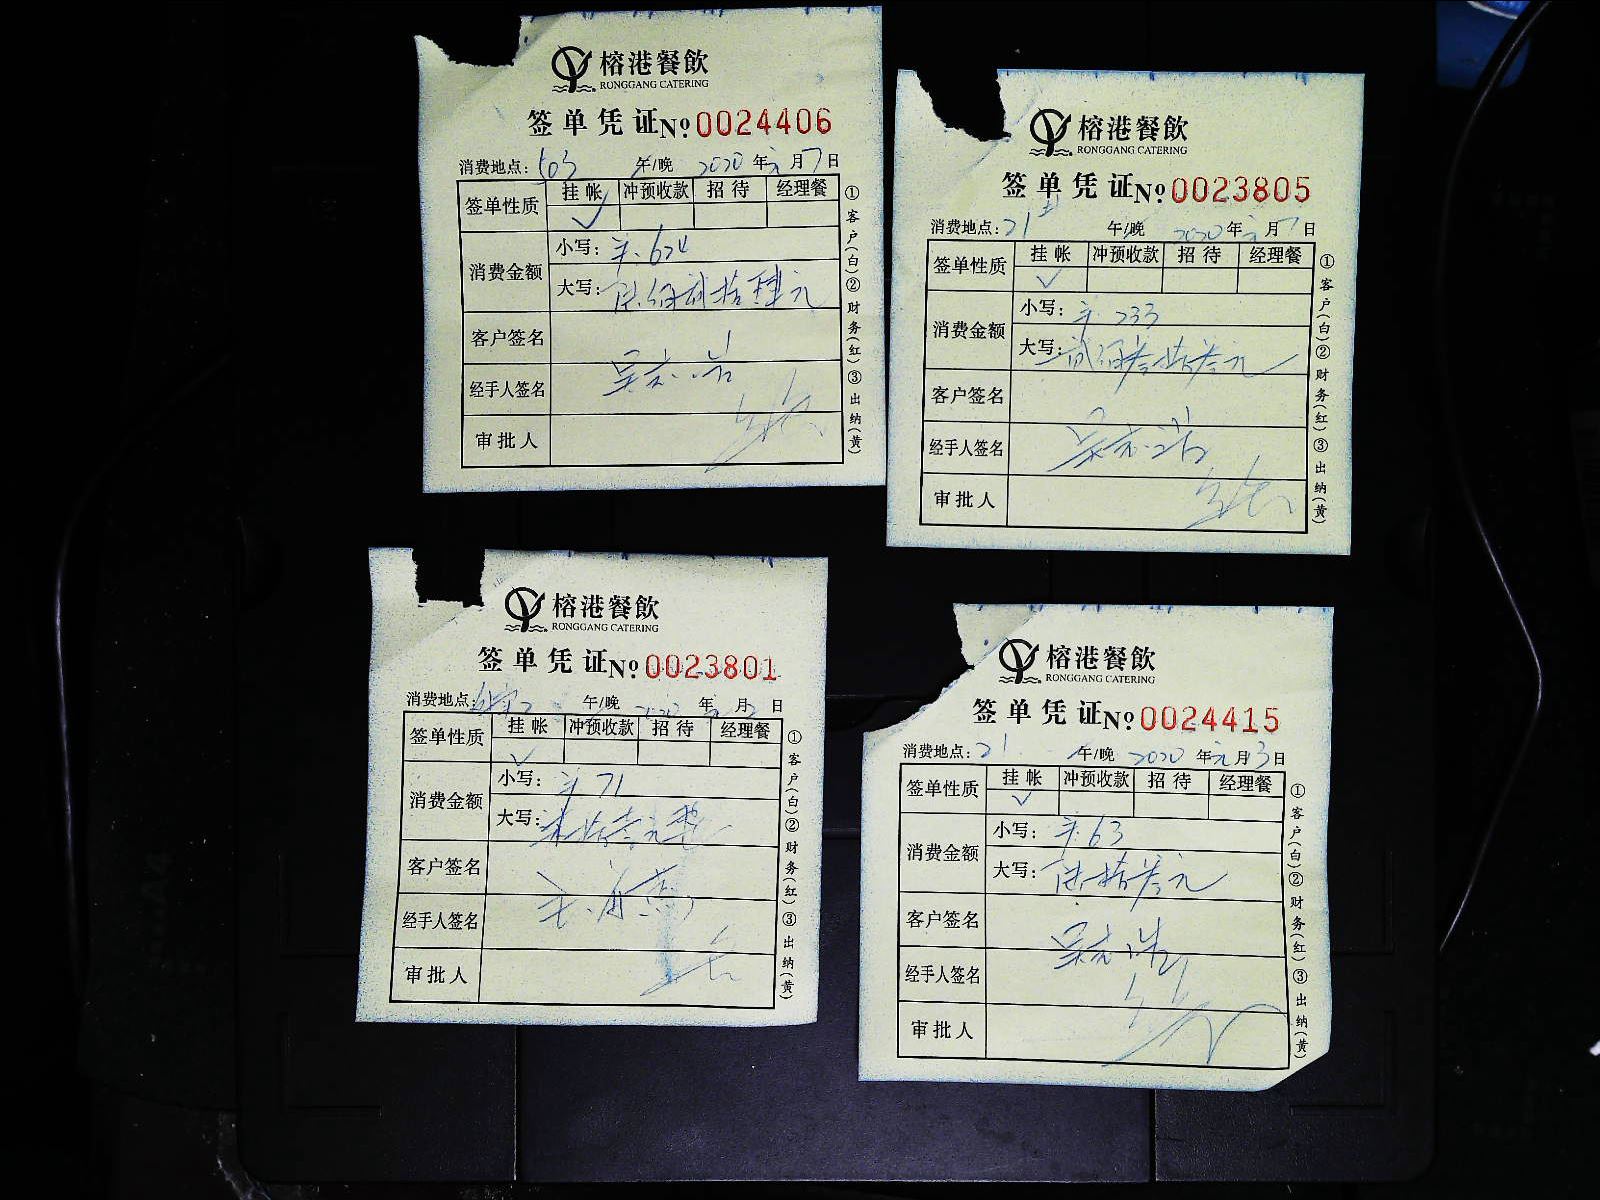 榕港餐飲
RONGGANG CATERING
签单凭证 № 0024406
消费地点: 503 午/晚 2020年元月7日
签单性质 挂帐 冲预收款 招待 经理餐
消费金额 小写: 624
大写: 陆佰贰拾肆元
客户签名
经手人签名
审批人
①客户(白)②财务(红)③出纳(黄)
榕港餐飲
RONGGANG CATERING
签单凭证 № 0023805
消费地点: 21 午/晚 2020年元月7日
签单性质 挂帐 冲预收款 招待 经理餐
消费金额 小写: 233
大写: 贰佰叁拾叁元
客户签名
经手人签名
审批人
①客户(白)②财务(红)③出纳(黄)
榕港餐飲
RONGGANG CATERING
签单凭证 № 0023801
消费地点: 午/晚 2020年元月2日
签单性质 挂帐 冲预收款 招待 经理餐
消费金额 小写: 71
大写: 柒拾壹元整
客户签名
经手人签名
审批人
①客户(白)②财务(红)③出纳(黄)
榕港餐飲
RONGGANG CATERING
签单凭证 № 0024415
消费地点: 21 午/晚 2020年元月3日
签单性质 挂帐 冲预收款 招待 经理餐
消费金额 小写: 63
大写: 陆拾叁元
客户签名
经手人签名
审批人
①客户(白)②财务(红)③出纳(黄)